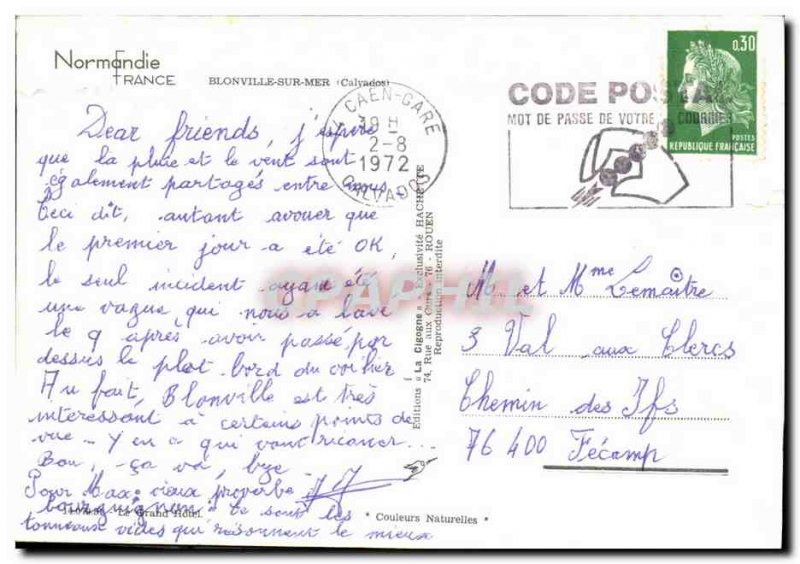 Normandie
FRANCE
BLONVILLE-SUR-MER (Calvados)
Dear friends, j'espère
que la pluie et le vent sont
également partagés entre nous.
Ceci dit, autant avouer que
le premier jour a été OK,
le seul incident ayant été
une vague qui nous a lavé
le 9 après avoir passé por
dessus le plat bord du voilier
Au fait, Blonville est très
intéressant à certains points de
vue - Y en a qui vont ricaner...
Bon, - ça va, bye
Pour Max: vieux proverbe
bourguignon: Ce sont les
Le Grand Hôtel.
tonneaux vides qui résonnent le mieux
" Couleurs Naturelles "
Editions " La Cigogne " Exclusivité HACHETTE
74, Rue aux Ours - 76 - ROUEN
Reproduction interdite
CAEN-GARE
19 H
2-8
1972
CALVADOS
CODE POSTAL
MOT DE PASSE DE VOTRE COURRIER
0,30
POSTES
REPUBLIQUE FRANÇAISE
M. et Mme Lemaître
3 Val aux Clercs
Chemin des Ifs
76 400 Fécamp
CPAPHIL